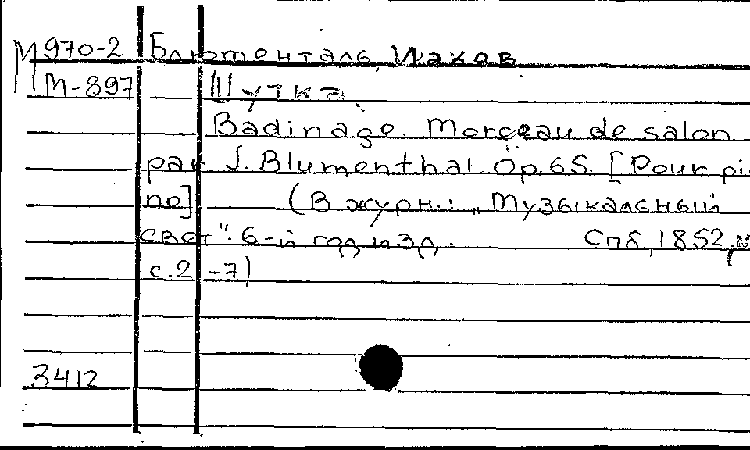 М 970-2 Блюменталь, Иаков
М-897 Шутка.
Badinage. Morçeau de salon
par J. Blumenthal. Op. 65. [Pour pi
no] (В журн.: „Музыкальный
свет". 6-й год изд. Спб, 1852,
с. 2-7)
3412